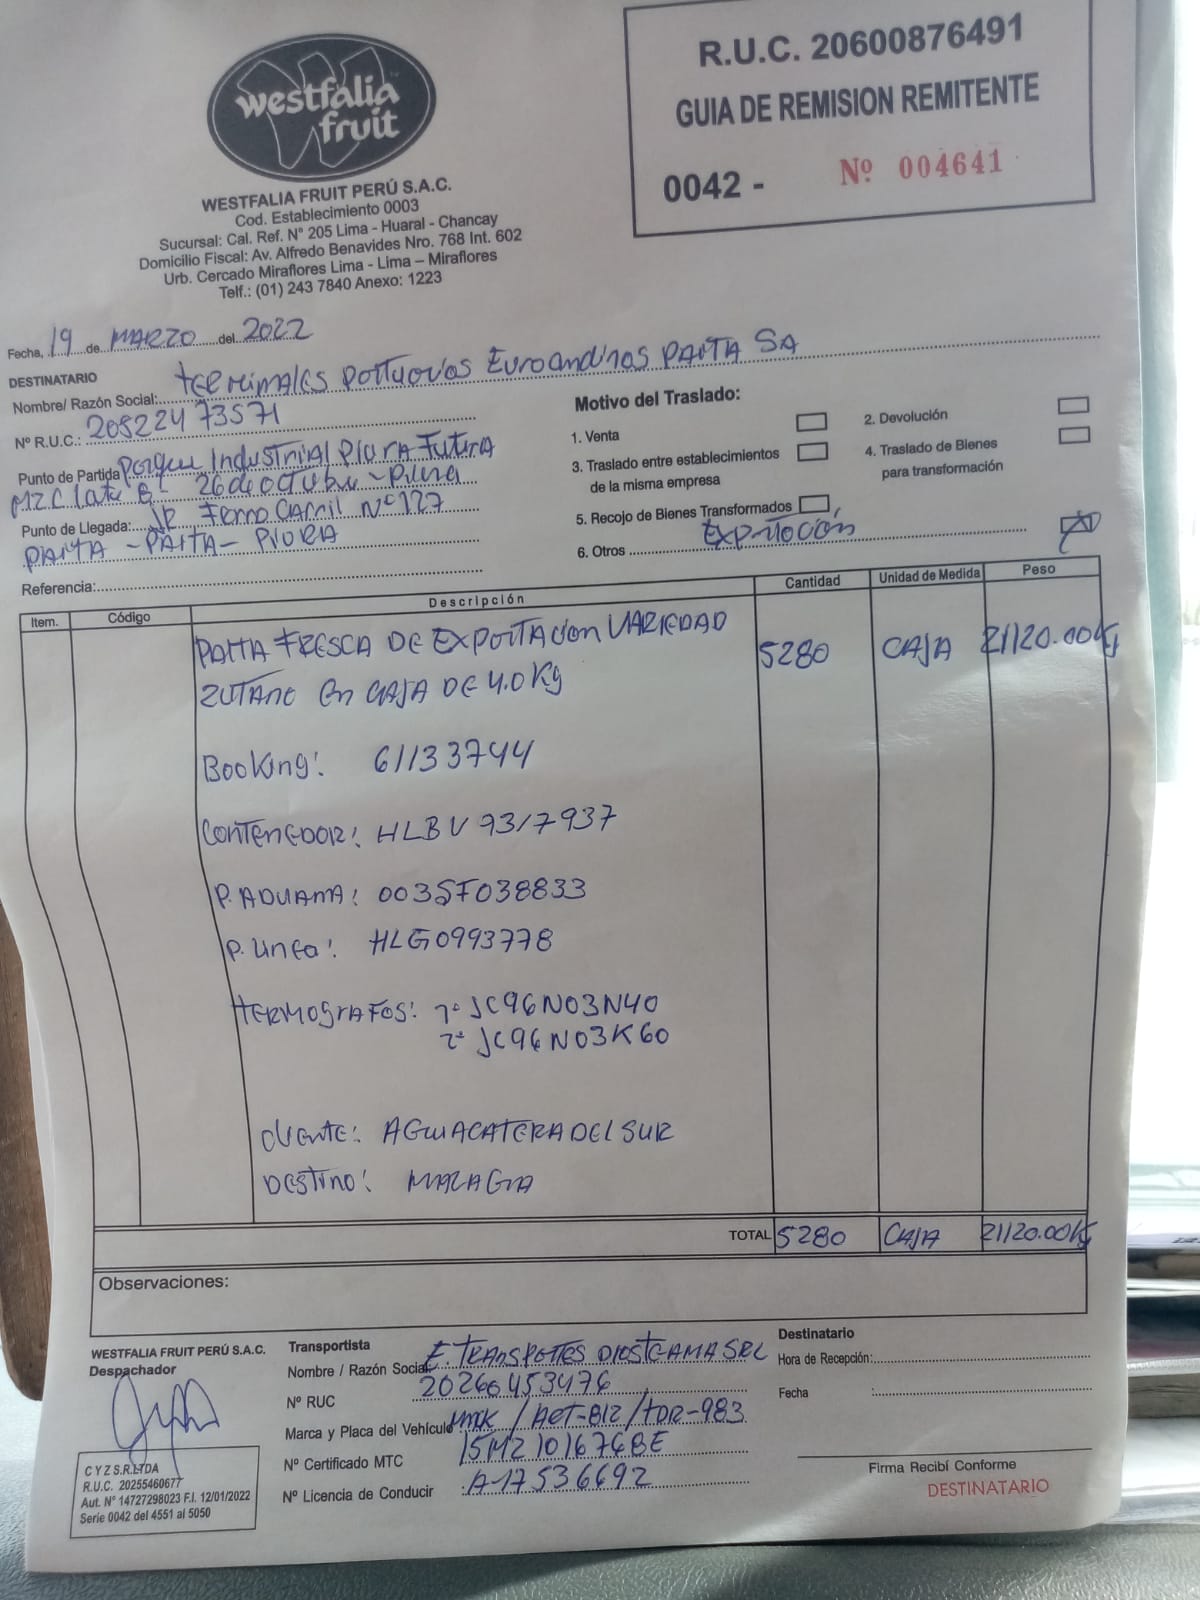 westfalia
fruit
WESTFALIA FRUIT PERÚ S.A.C.
Cod. Establecimiento 0003
Sucursal: Cal. Ref. N° 205 Lima - Huaral - Chancay
Domicilio Fiscal: Av. Alfredo Benavides Nro. 768 Int. 602
Urb. Cercado Miraflores Lima - Lima – Miraflores
Telf.: (01) 243 7840 Anexo: 1223
R.U.C. 20600876491
GUIA DE REMISION REMITENTE
0042 - Nº 004641
Fecha, 19 de MARZO del 2022
DESTINATARIO
Nombre/ Razón Social: terminales portuarios Euroandinos PAITA SA
Nº R.U.C.: 20522473571
Punto de Partida Parque Industrial Piura Futura
MZ C lote 8 - 26 de octubre - Piura
Punto de Llegada: JR Ferro Carril N° 127
PAITA - PAITA - PIURA
Referencia:
Motivo del Traslado:
1. Venta
2. Devolución
3. Traslado entre establecimientos
de la misma empresa
4. Traslado de Bienes
para transformación
5. Recojo de Bienes Transformados
6. Otros Exportación
Item. Código Descripción Cantidad Unidad de Medida Peso
PALTA FRESCA DE EXPORTACION VARIEDAD 5280 CAJA 21120.00Kg
ZUTANO En CAJA DE 4.0 Kg
Booking: 61133744
CONTENEDOR: HLBU 9317937
P. ADUANA: 003SF038833
P. Linea: HLG0993778
TERMOGRAFOS: 1° JC96N03N40
2° JC96N03K60
Cliente: AGUACATERA DEL SUR
Destino: MALAGA
TOTAL 5280 CAJA 21120.00Kg
Observaciones:
WESTFALIA FRUIT PERÚ S.A.C.
Despachador
C Y Z S.R.LTDA
R.U.C. 20255460677
Aut. N° 14727298023 F.I. 12/01/2022
Serie 0042 del 4551 al 5050
Transportista
Nombre / Razón Social E. TRANSPORTES DIOSTEAMA SRL
Nº RUC 20260453476
Marca y Placa del Vehículo MACK / AET-812 / TDR-983
Nº Certificado MTC 15M21016746BE
Nº Licencia de Conducir A-17536692
Destinatario
Hora de Recepción:
Fecha :
Firma Recibí Conforme
DESTINATARIO